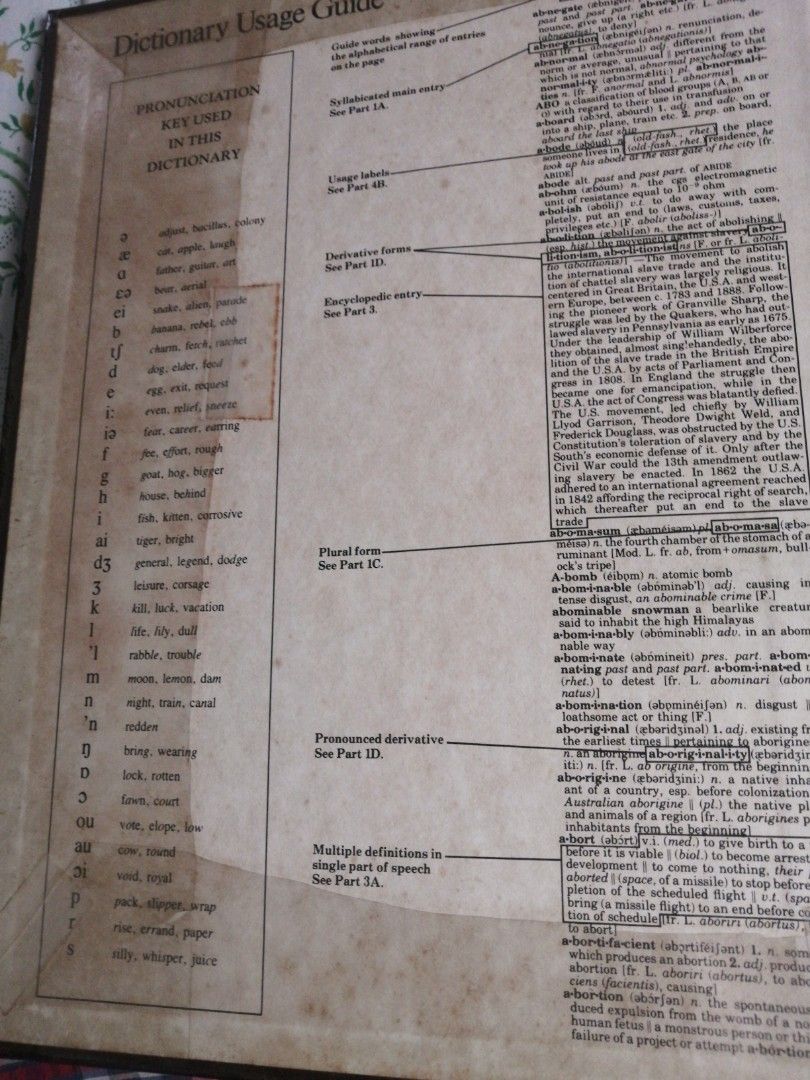 Dictionary Usage Guide
PRONUNCIATION
KEY USED
IN THIS
DICTIONARY
ə adjust, bacillus, colony
æ cat, apple, laugh
ɑ father, guitar, art
ɛə bear, aerial
ei snake, alien, parade
b banana, rebel, ebb
tʃ charm, fetch, ratchet
d dog, elder, food
e egg, exit, request
i: even, relief, sneeze
iə fear, career, earring
f fee, effort, rough
g goat, hog, bigger
h house, behind
i fish, kitten, corrosive
ai tiger, bright
dʒ general, legend, dodge
ʒ leisure, corsage
k kill, luck, vacation
l life, lily, dull
'l rabble, trouble
m moon, lemon, dam
n night, train, canal
'n redden
ŋ bring, wearing
ɒ lock, rotten
ɔ fawn, court
ou vote, elope, low
au cow, round
ɔi void, royal
p pack, slipper, wrap
r rise, errand, paper
s silly, whisper, juice
Guide words showing
the alphabetical range of entries
on the page
Syllabicated main entry
See Part 1A.
Usage labels
See Part 4B.
Derivative forms
See Part 1D.
Encyclopedic entry
See Part 3.
Plural form
See Part 1C.
Pronounced derivative
See Part 1D.
Multiple definitions in
single part of speech
See Part 3A.
ab·ne·gate
past and past part.
nounce, give up (a right etc.) [fr. L.
(abnegatus) to deny]
ab·ne·ga·tion (æbnigéiʃən) n. renunciation, de-
nial [fr. L. abnegatio (abnegationis)]
ab·nor·mal (æbnɔ́rməl) adj. different from the
norm or average, unusual ‖ pertaining to that
which is not normal, abnormal psychology ab-
nor·mal·i·ty (æbnɔrmǽliti:) pl. ab·nor·mal·i-
ties n. [fr. F. anormal and L. abnormis]
ABO a classification of blood groups (A, B, AB or
O) with regard to their use in transfusion
a·board (əbɔ́rd, əbóurd) 1. adj. and adv. on or
into a ship, plane, train etc. 2. prep. on board,
aboard the last ship
a·bode (əbóud) n. (old-fash., rhet.) the place
someone lives in (old-fash., rhet.) residence, he
took up his abode at the east gate of the city [fr.
ABIDE]
abode alt. past and past part. of ABIDE
ab·ohm (æbóum) n. the cgs electromagnetic
unit of resistance equal to 10⁻⁹ ohm
a·bol·ish (əbɒ́liʃ) v.t. to do away with com-
pletely, put an end to (laws, customs, taxes,
privileges etc.) [F. abolir (aboliss-)]
ab·o·li·tion (æbəlíʃən) n. the act of abolishing ‖
(esp. hist.) the movement against slavery ab·o-
li·tion·ism, ab·o·li·tion·ist ns [F. or fr. L. aboli-
tio (abolitionis)] —The movement to abolish
the international slave trade and the institu-
tion of chattel slavery was largely religious. It
centered in Great Britain, the U.S.A. and west-
ern Europe, between c. 1783 and 1888. Follow-
ing the pioneer work of Granville Sharp, the
struggle was led by the Quakers, who had out-
lawed slavery in Pennsylvania as early as 1675.
Under the leadership of William Wilberforce
they obtained, almost singlehandedly, the abo-
lition of the slave trade in the British Empire
and the U.S.A. by acts of Parliament and Con-
gress in 1808. In England the struggle then
became one for emancipation, while in the
U.S.A. the act of Congress was blatantly defied.
The U.S. movement, led chiefly by William
Llyod Garrison, Theodore Dwight Weld, and
Frederick Douglass, was obstructed by the U.S.
Constitution's toleration of slavery and by the
South's economic defense of it. Only after the
Civil War could the 13th amendment outlaw-
ing slavery be enacted. In 1862 the U.S.A.
adhered to an international agreement reached
in 1842 affording the reciprocal right of search,
which thereafter put an end to the slave
trade
ab·o·ma·sum (æbəméisəm) pl. ab·o·ma·sa (æbə-
méisə) n. the fourth chamber of the stomach of a
ruminant [Mod. L. fr. ab, from+omasum, bull-
ock's tripe]
A-bomb (éibɒm) n. atomic bomb
a·bom·i·na·ble (əbɒ́minəb'l) adj. causing in-
tense disgust, an abominable crime [F.]
abominable snowman a bearlike creature
said to inhabit the high Himalayas
a·bom·i·na·bly (əbɒ́minəbli:) adv. in an abom
nable way
a·bom·i·nate (əbɒ́mineit) pres. part. a·bom·
nat·ing past and past part. a·bom·i·nat·ed
(rhet.) to detest [fr. L. abominari (abom
natus)]
a·bom·i·na·tion (əbɒminéiʃən) n. disgust ‖
loathsome act or thing [F.]
ab·o·rig·i·nal (æbərídʒinəl) 1. adj. existing fr
the earliest times ‖ pertaining to aborigine
n. an aborigine ab·o·rig·i·nal·i·ty (æbəridʒin
iti:) n. [fr. L. ab origine, from the beginnin
ab·o·rig·i·ne (æbərídʒini:) n. a native inha
ant of a country, esp. before colonization
Australian aborigine ‖ (pl.) the native pl
and animals of a region [fr. L. aborigines p
inhabitants from the beginning]
a·bort (əbɔ́rt) v.i. (med.) to give birth to a
before it is viable ‖ (biol.) to become arrest
development ‖ to come to nothing, their
aborted ‖ (space, of a missile) to stop before
pletion of the scheduled flight ‖ v.t. (spa
bring (a missile flight) to an end before co
tion of schedule [fr. L. aboriri (abortus),
to abort]
a·bor·ti·fa·cient (əbɔrtiféiʃənt) 1. n. som
which produces an abortion 2. adj. produc
abortion [fr. L. aboriri (abortus), to abo
ciens (facientis), causing]
a·bor·tion (əbɔ́rʃən) n. the spontaneous
duced expulsion from the womb of a no
human fetus ‖ a monstrous person or thi
failure of a project or attempt a·bór·tion